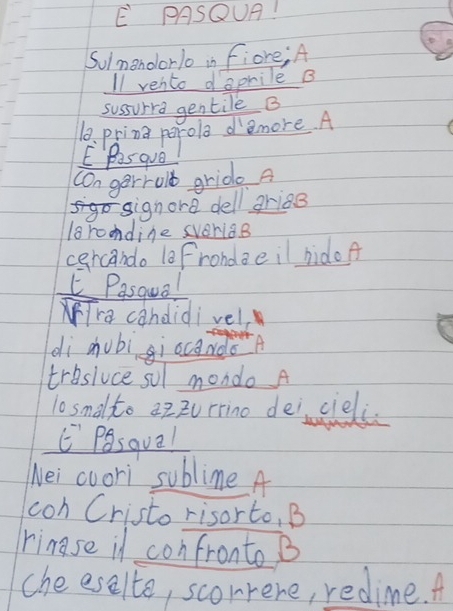 È PASQUA!
Sul mandorlo in fiore; A
Il vento d'aprile B
sussurra gentile B
la prima parola d'amore A
È Pasqua
Con garrulo grido A
sigo signora dell'aria B
la rondine svaria B
cercando la fronda e il nido A
È Pasqua!
Tra candidi vel,
di nubi, giocando A
trasluce sul mondo A
lo smalto azzurrino dei cieli.
È Pasqua!
Nei cuori sublime A
con Cristo risorto, B
rinase il confronto B
che esalta, scorrere, redime. A